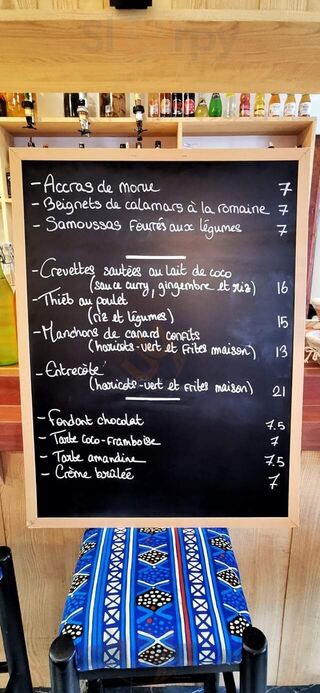 - Accras de morue 7
- Beignets de calamars à la romaine 7
- Samoussas Fourrés aux légumes 7
- Crevettes sautées au lait de coco
(sauce curry, gingembre et riz) 16
- Thiéb au poulet
(riz et légumes) 15
- Manchons de canard confits
(haricots-vert et Frites maison) 13
- Entrecôte
(haricots-vert et Frites maison) 21
- Fondant chocolat 7.5
- Tarte coco-framboise 7
- Tarte amandine 7.5
- Crème brûlée 7